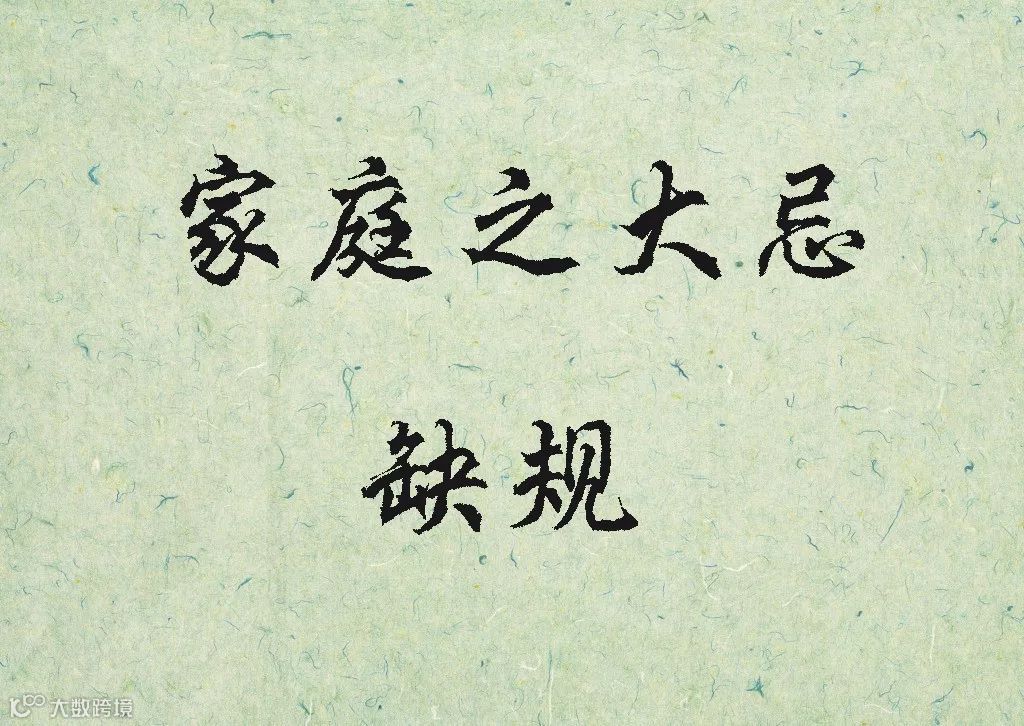 家庭之大忌
缺规
大数跨境